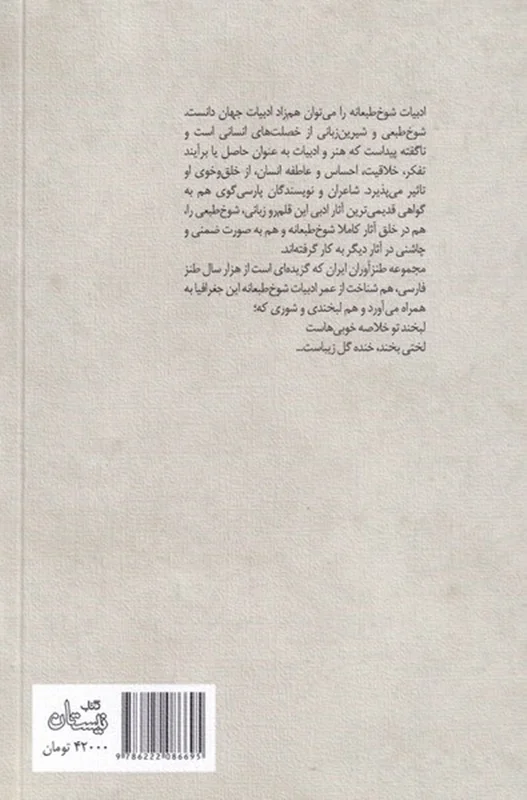 ادبیات شوخ‌طبعانه را می‌توان هم‌زاد ادبیات جهان دانست.
شوخ‌طبعی و شیرین‌زبانی از خصلت‌های انسانی است و
ناگفته پیداست که هنر و ادبیات به عنوان حاصل یا برآیند
تفکر، خلاقیت، احساس و عاطفه انسان، از خلق‌وخوی او
تاثیر می‌پذیرد. شاعران و نویسندگان پارسی‌گوی هم به
گواهی قدیمی‌ترین آثار ادبی این قلم‌رو زبانی، شوخ‌طبعی را،
هم در خلق آثار کاملا شوخ‌طبعانه و هم به صورت ضمنی و
چاشنی در آثار دیگر به کار گرفته‌اند.
مجموعه طنزآوران ایران که گزیده‌ای است از هزار سال طنز
فارسی، هم شناخت از عمر ادبیات شوخ‌طبعانه این جغرافیا به
همراه می‌آورد و هم لبخندی و شوری که؛
لبخند تو خلاصه خوبی‌هاست
لختی بخند، خنده گل زیباست...
کتاب
نیستان
۴۲۰۰۰ تومان
9 786222 086695